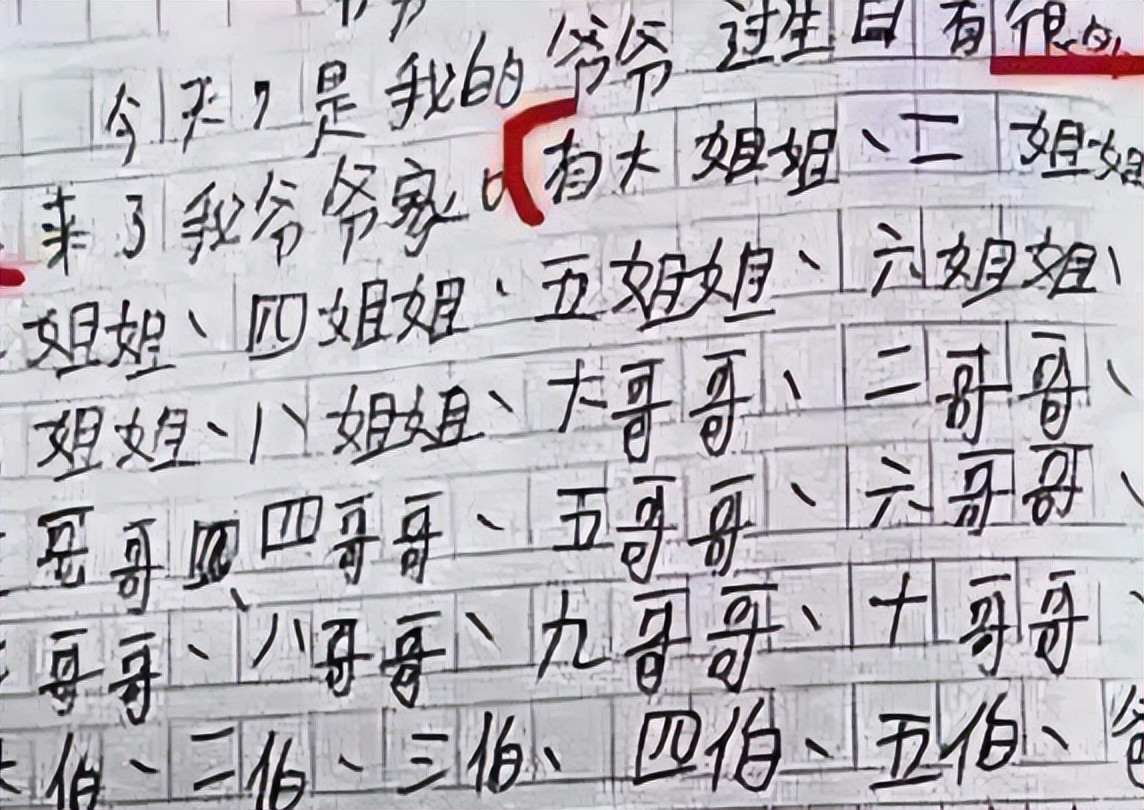 今天，是我的爷爷过生日有很多
来了我爷爷家。有大姐姐、二姐姐
姐姐、四姐姐、五姐姐、六姐姐、
姐姐、八姐姐、大哥哥、二哥哥、
哥哥四四哥哥、五哥哥、六哥哥、
哥哥、八哥哥、九哥哥、十哥哥、
伯、二伯、三伯、四伯、五伯、